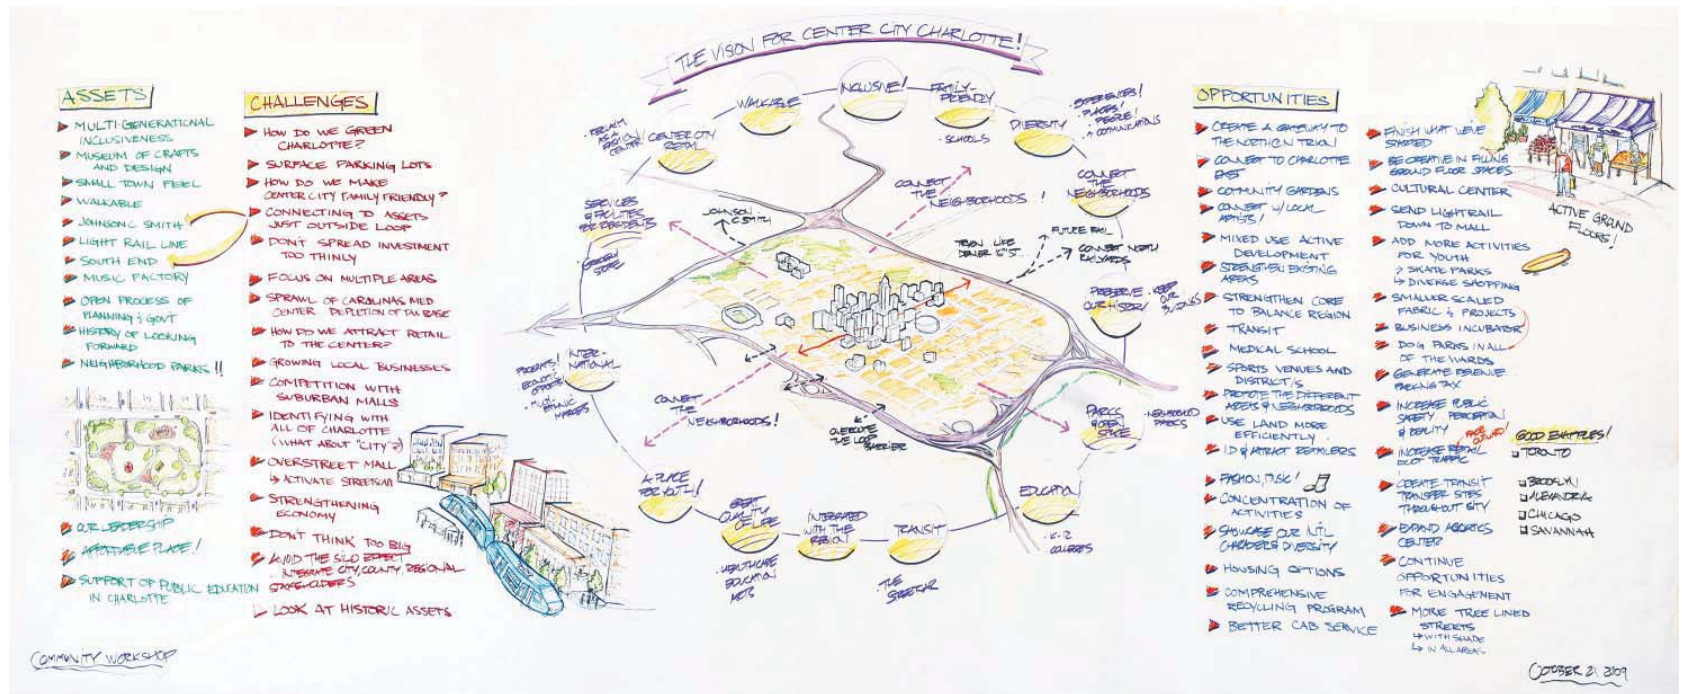 THE VISION FOR CENTER CITY CHARLOTTE!
ASSETS
MULTI-GENERATIONAL
INCLUSIVENESS
MUSEUM OF CRAFTS
AND DESIGN
SMALL TOWN FEEL
WALKABLE
JOHNSON C SMITH
LIGHT RAIL LINE
SOUTH END
MUSIC FACTORY
OPEN PROCESS OF
PLANNING & GOV'T
HISTORY OF LOOKING
FORWARD
NEIGHBORHOOD PARKS!!
OUR LEADERSHIP
AFFORDABLE PLACE!
SUPPORT OF PUBLIC EDUCATION
IN CHARLOTTE
CHALLENGES
HOW DO WE GREEN
CHARLOTTE?
SURFACE PARKING LOTS
HOW DO WE MAKE
CENTER CITY FAMILY FRIENDLY?
CONNECTING TO ASSETS
JUST OUTSIDE LOOP
DON'T SPREAD INVESTMENT
TOO THINLY
FOCUS ON MULTIPLE AREAS
SPRAWL OF CAROLINAS MED
CENTER. DEPLETION OF BASE
HOW DO WE ATTRACT RETAIL
TO THE CENTER?
GROWING LOCAL BUSINESSES
COMPETITION WITH
SUBURBAN MALLS
IDENTIFYING WITH
ALL OF CHARLOTTE
(WHAT ABOUT "CITY"?)
OVERSTREET MALL
↳ ACTIVATE STREETSCAPE
STRENGTHENING
ECONOMY
DON'T THINK TOO BIG
AVOID THE SILO EFFECT
INTEGRATE CITY, COUNTY, REGIONAL
STAKEHOLDERS
LOOK AT HISTORIC ASSETS
CENTER CITY
RETAIL
WALKABLE
INCLUSIVE!
FAMILY-
FRIENDLY
• SCHOOLS
DIVERSITY
• EXPERIENCES!
• PLACES!
• PEOPLE!
COMMUNICATIONS
CONNECT
THE
NEIGHBORHOODS
PRESERVE
OUR HISTORY
• KEEP
OUR
BUILDINGS
PARKS
& OPEN
SPACE
• NEIGHBORHOOD
PARKS
EDUCATION
• K-12
COLLEGES
TRANSIT
• THE
STREETCAR
INTEGRATED
WITH THE
REGION
GREAT
QUALITY
OF LIFE
• HEALTHCARE
EDUCATION
ARTS
A PLACE
FOR YOUTH!
INTER-
NATIONAL
SERVICES
& FACILITIES
FOR RESIDENTS
• GROCERY
STORE
JOHNSON
C SMITH
CONNECT
THE
NEIGHBORHOODS!
FUTURE RAIL
CONNECT NORTH
RAILYARDS
CONNECT
THE
NEIGHBORHOODS!
OVERCOME
THE LOOP
BARRIER
OPPORTUNITIES
CREATE A GATEWAY TO
THE NORTH ON TRYON!
CONNECT TO CHARLOTTE
EAST
COMMUNITY GARDENS
CONNECT W/ LOCAL
ARTISTS!
MIXED USE ACTIVE
DEVELOPMENT
STRENGTHEN EXISTING
AREAS
STRENGTHEN CORE
TO BALANCE REGION
TRANSIT
MEDICAL SCHOOL
SPORTS VENUES AND
DISTRICT/S
PROMOTE THE DIFFERENT
AREAS & NEIGHBORHOODS
USE LAND MORE
EFFICIENTLY
ID & ATTRACT RETAILERS
FASHION, MUSIC!
CONCENTRATION OF
ACTIVITIES
SHOWCASE OUR INT'L
CHARACTER & DIVERSITY
HOUSING OPTIONS
COMPREHENSIVE
RECYCLING PROGRAM
BETTER CAB SERVICE
FINISH WHAT WE'VE
STARTED
BE CREATIVE IN FILLING
GROUND FLOOR SPACES
CULTURAL CENTER
SEND LIGHTRAIL
DOWN TO MALL
ADD MORE ACTIVITIES
FOR YOUTH
↳ SKATE PARKS
↳ DIVERSE SHOPPING
SMALLER SCALED
FABRIC & PROJECTS
BUSINESS INCUBATOR
DOG PARKS IN ALL
OF THE WARDS
GENERATE REVENUE
PARKING TAX
INCREASE PUBLIC
SAFETY PERCEPTION
& REALITY
INCREASE RETAIL
FOOT TRAFFIC
CREATE TRANSIT
TRANSFER SITES
THROUGHOUT CITY
EXPAND AQUATICS
CENTER
CONTINUE
OPPORTUNITIES
FOR ENGAGEMENT
MORE TREE LINED
STREETS
↳ WITH SHADE
↳ IN ALL AREAS
ACTIVE GROUND
FLOORS!
GOOD EXAMPLES!
TORONTO
BROOKLYN
ALEXANDRIA
CHICAGO
SAVANNAH
COMMUNITY WORKSHOP
OCTOBER 21, 2009